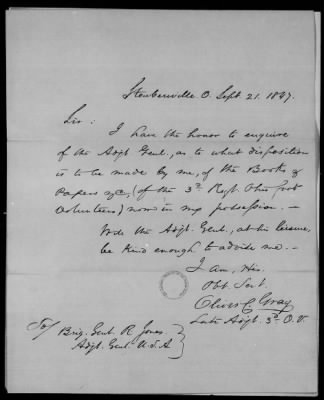 Steubenville O. Sept 21. 1847.
Sir:
I have the honor to enquire
of the Adjt Genl., as to what disposition
is to be made by me, of the Books &
Papers &c, (of the 3d Regt. Ohio foot
Volunteers) now in my possession. —
Will the Adjt. Genl., at his leisure,
be kind enough to advise me. —
I am, His.
Obt Servt.
Oliver C. Gray
Late Adjt. 3d O. V.
To/ Brig. Genl R Jones
Adjt. Genl. U.S.A